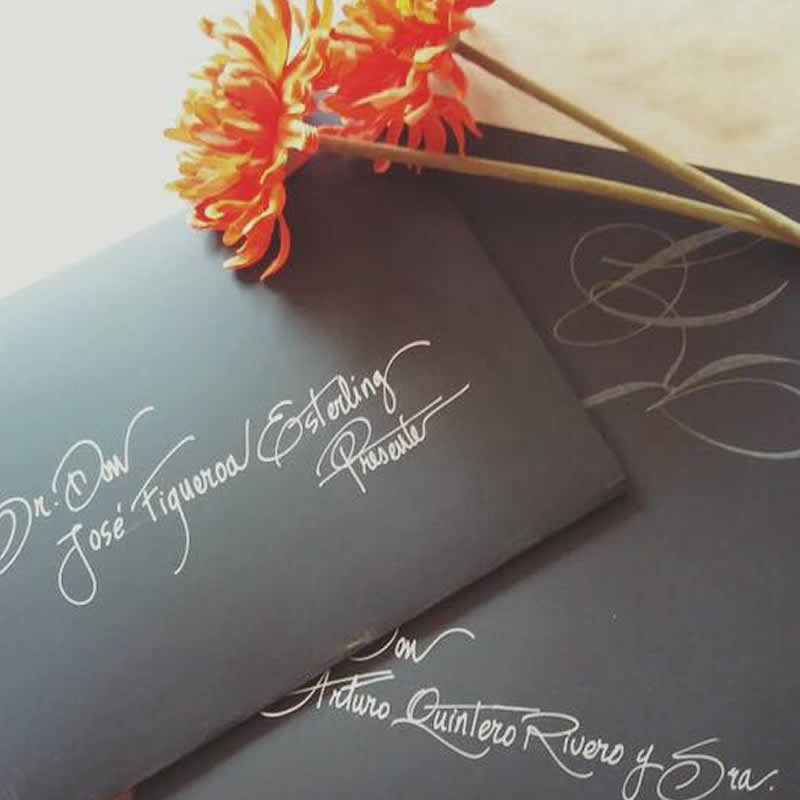 Dr. Don
José Figueroa Esterling
Presente
Don
Arturo Quintero Rivero y Sra.